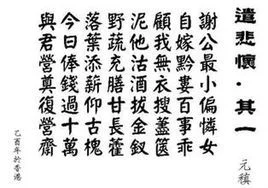 遣悲懷·其一
元稹
謝公最小偏憐女
自嫁黔婁百事乖
顧我無衣搜藎篋
泥他沽酒拔金釵
野蔬充膳甘長藿
落葉添薪仰古槐
今日俸錢過十萬
與君營奠復營齋
乙酉年於香港